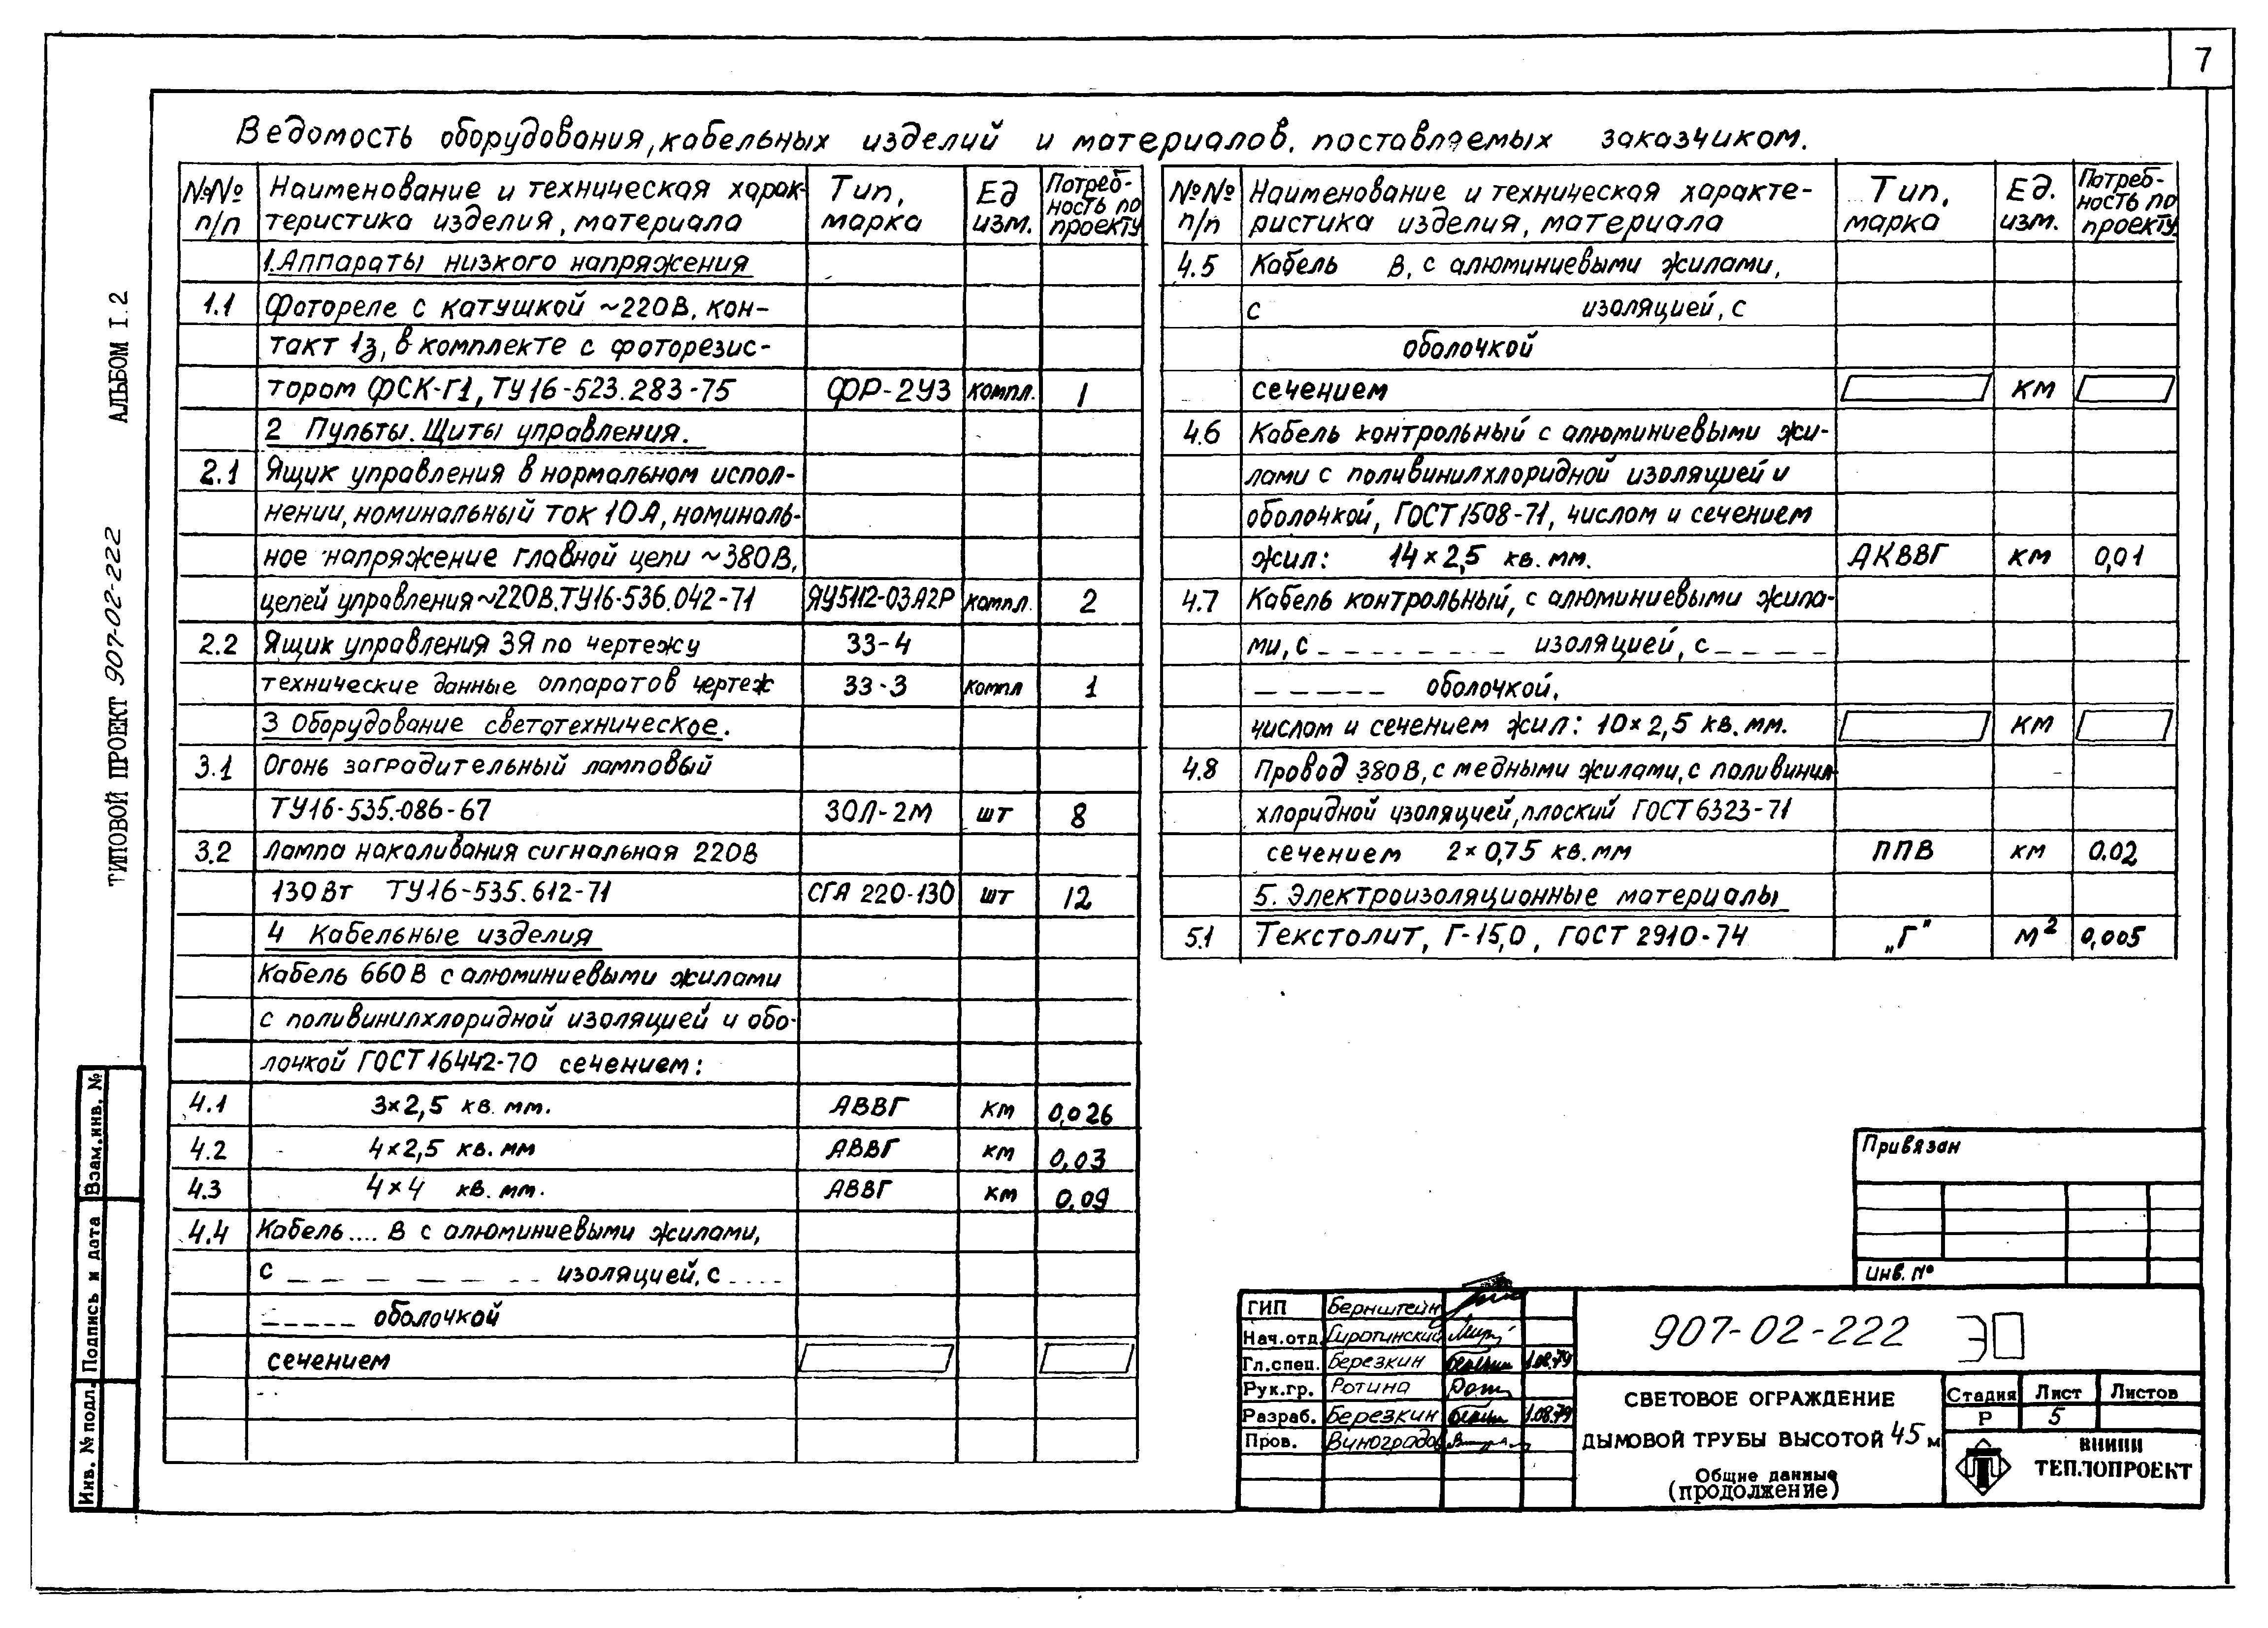 7
Ведомость оборудования, кабельных изделий и материалов, поставляемых заказчиком.
№№ п/п
Наименование и техническая харак-
теристика изделия, материала
Тип, марка
Ед изм.
Потреб-
ность по
проекту
1. Аппараты низкого напряжения
1.1 Фотореле с катушкой ~220В, кон-
такт 1з, в комплекте с фоторезис-
тором ФСК-Г1, ТУ16-523.283-75 ФР-2У3 компл. 1
2 Пульты. Щиты управления.
2.1 Ящик управления в нормальном испол-
нении, номинальный ток 10А, номиналь-
ное напряжение главной цепи ~380В,
цепей управления ~220В. ТУ16-536.042-71 ЯУ5112-03А2Р компл. 2
2.2 Ящик управления ЗЯ по чертежу 33-4
технические данные аппаратов чертеж 33-3 компл 1
3 Оборудование светотехническое.
3.1 Огонь заградительный ламповый
ТУ16-535.086-67 ЗОЛ-2М шт 8
3.2 Лампа накаливания сигнальная 220В
130Вт ТУ16-535.612-71 СГА 220-130 шт 12
4 Кабельные изделия
Кабель 660В с алюминиевыми жилами
с поливинилхлоридной изоляцией и обо-
лочкой ГОСТ 16442-70 сечением:
4.1 3×2,5 кв. мм. АВВГ км 0,026
4.2 4×2,5 кв. мм АВВГ км 0,03
4.3 4×4 кв. мм. АВВГ км 0.09
4.4 Кабель.... В с алюминиевыми жилами,
с _ _ _ _ _ _ изоляцией, с ....
_ _ _ _ _ оболочкой
сечением
№№ п/п
Наименование и техническая характе-
ристика изделия, материала
Тип, марка
Ед. изм.
Потреб-
ность по
проекту
4.5 Кабель В, с алюминиевыми жилами,
с изоляцией, с
оболочкой
сечением км
4.6 Кабель контрольный с алюминиевыми жи-
лами с поливинилхлоридной изоляцией и
оболочкой, ГОСТ 1508-71, числом и сечением
жил: 14×2,5 кв. мм. АКВВГ км 0,01
4.7 Кабель контрольный, с алюминиевыми жила-
ми, с _ _ _ _ _ _ _ изоляцией, с _ _ _ _
_ _ _ _ _ оболочкой,
числом и сечением жил: 10×2,5 кв. мм. км
4.8 Провод 380В, с медными жилами, с поливинил-
хлоридной изоляцией, плоский ГОСТ 6323-71
сечением 2×0,75 кв. мм ППВ км 0.02
5. Электроизоляционные материалы
5.1 Текстолит, Г-15,0, ГОСТ 2910-74 „Г" м² 0,005
ТИПОВОЙ ПРОЕКТ 907-02-222 АЛЬБОМ I.2
Взам.инв. №
Подпись и дата
Инв. № подл.
Привязан
Инв. №
ГИП Бернштейн
Нач.отд. Сиротинский
Гл.спец. Березкин 1.08.79
Рук.гр. Ротина
Разраб. Березкин 1.08.79
Пров. Виноградов
907-02-222 Э
СВЕТОВОЕ ОГРАЖДЕНИЕ
ДЫМОВОЙ ТРУБЫ ВЫСОТОЙ 45 м
Общие данные
(продолжение)
Стадия Лист Листов
Р 5
ВНИПИ
ТЕПЛОПРОЕКТ